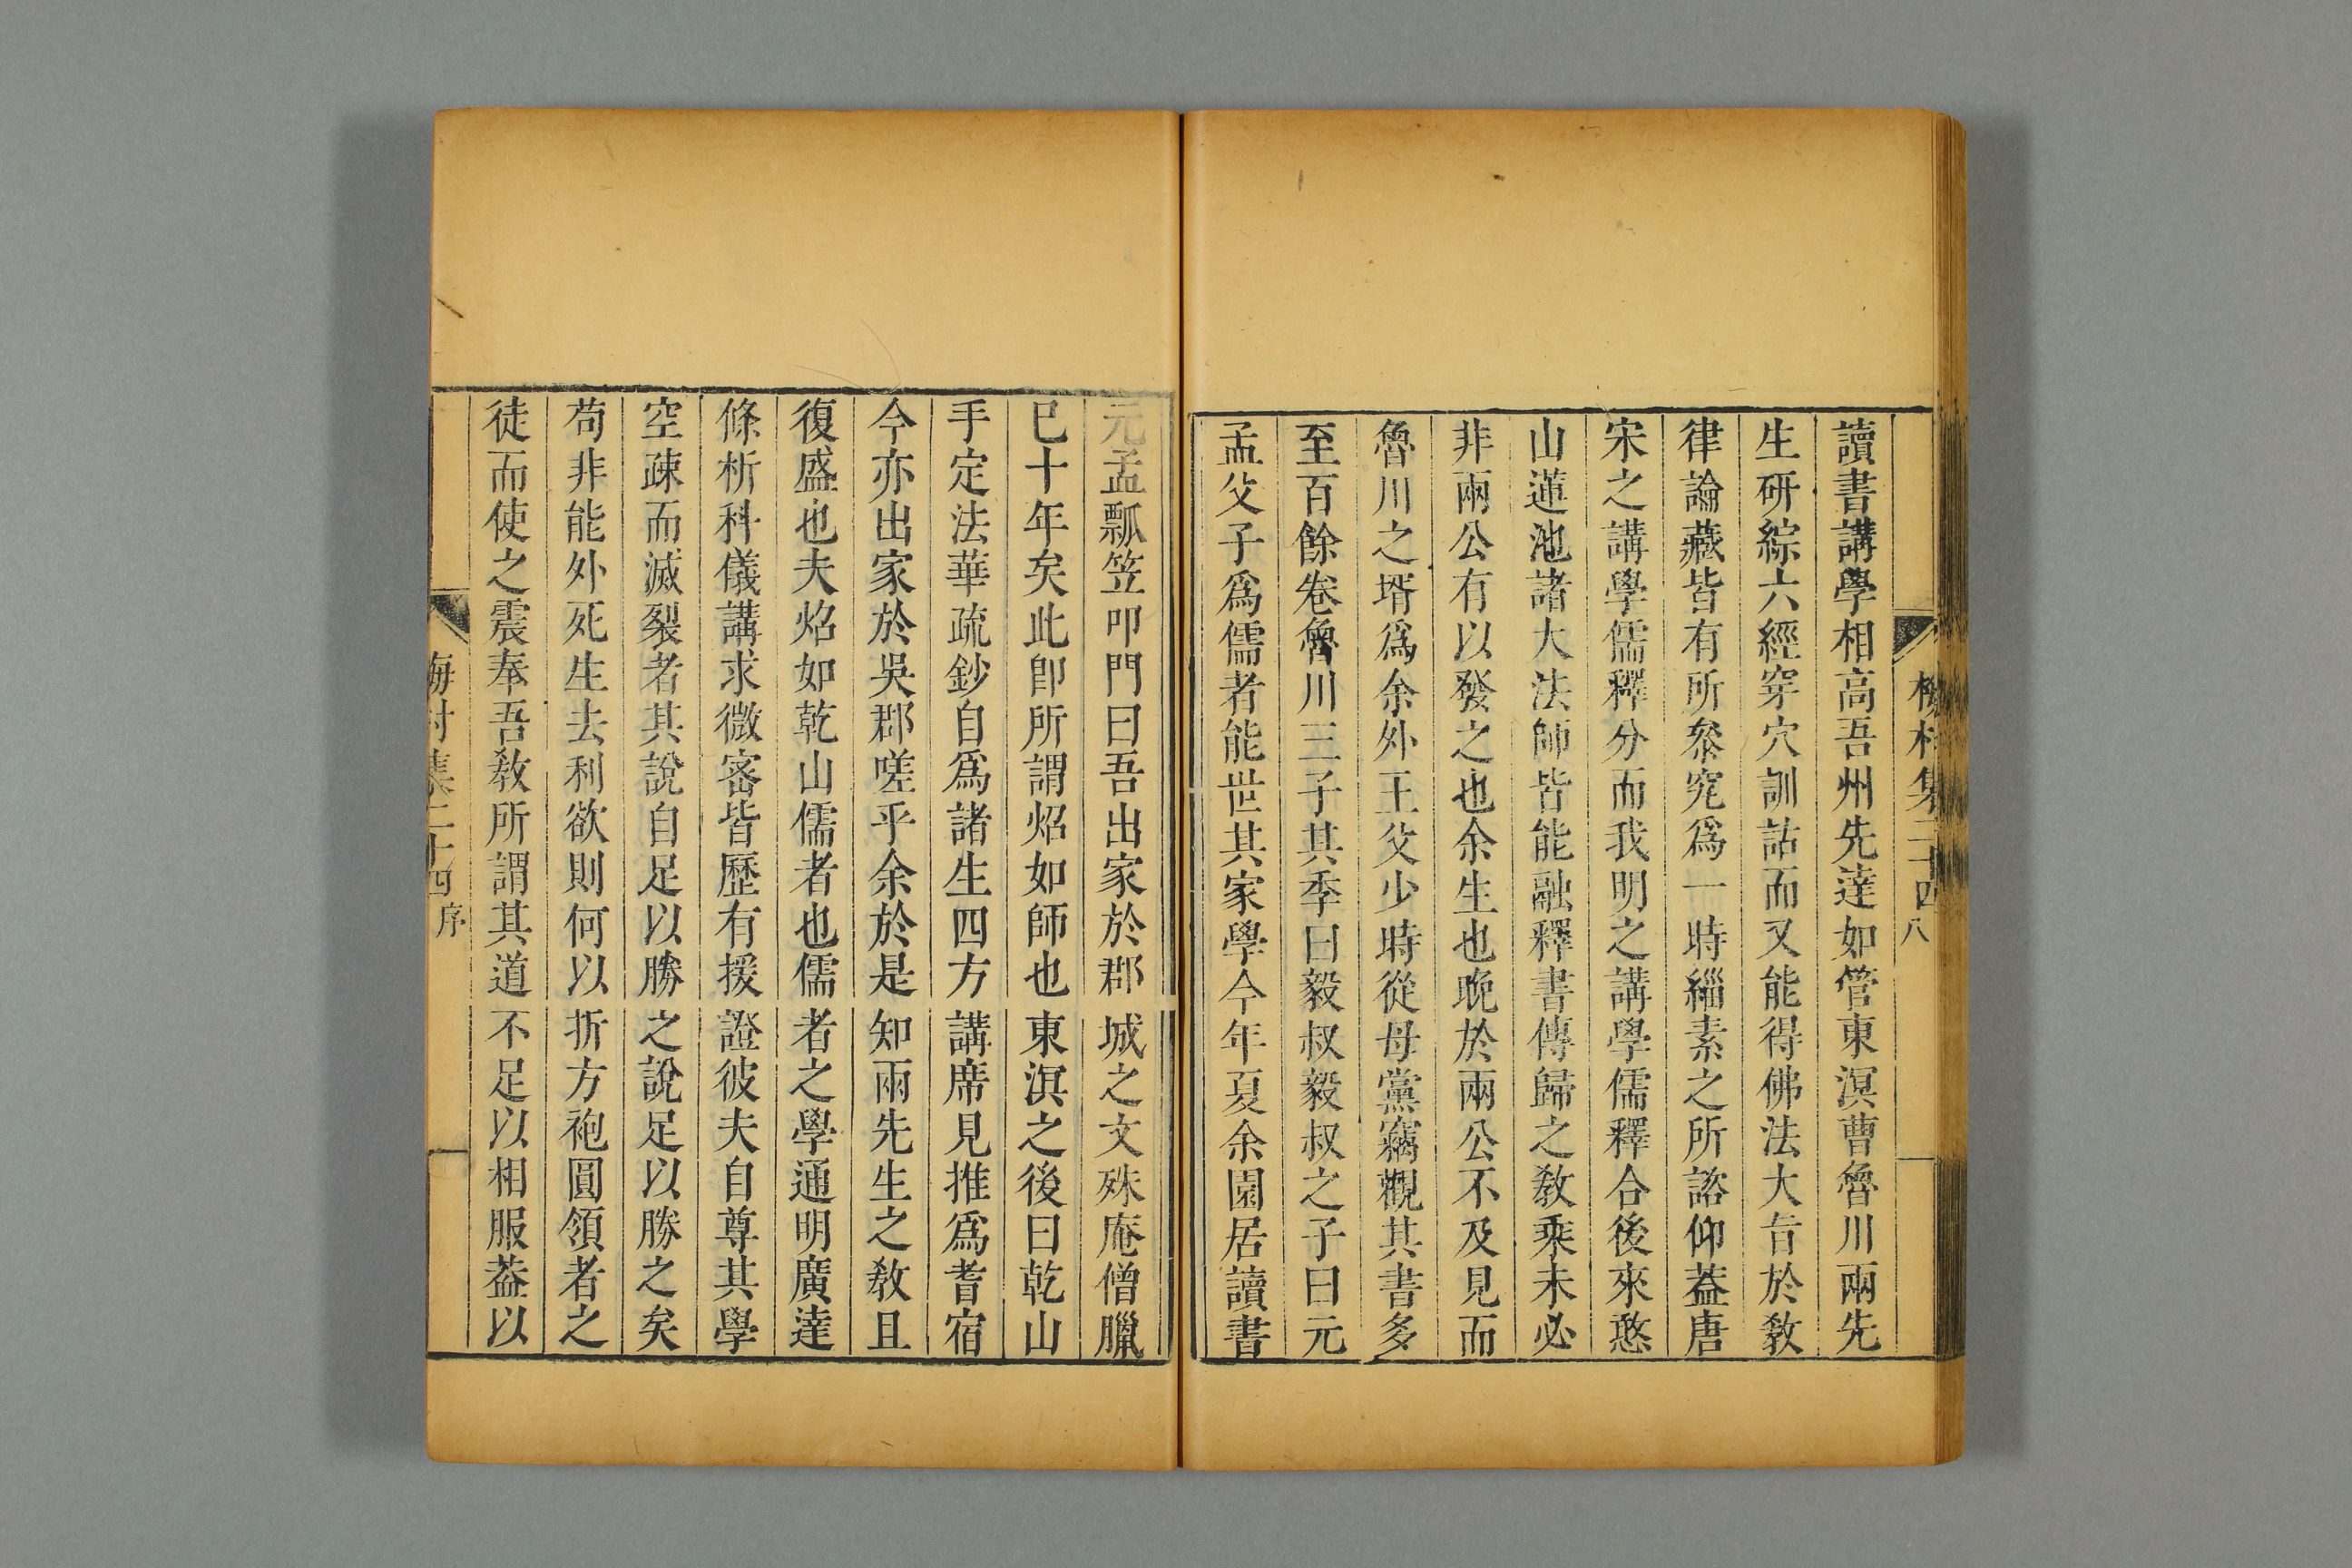 讀書講學相高吾州先達如管東溟曹魯川兩先
生研綜六經穿穴訓詁而又能得佛法大旨於敎
律論藏皆有所叅究爲一時緇素之所諮仰葢唐
宋之講學儒釋分而我明之講學儒釋合後來憨
山蓮池諸大法師皆能融釋書傳歸之敎乘未必
非兩公有以發之也余生也晚於兩公不及見而
魯川之壻爲余外王父少時從母黨竊觀其書多
至百餘卷魯川三子其季曰毅叔毅叔之子曰元
孟父子爲儒者能世其家學今年夏余園居讀書
元孟瓢笠叩門曰吾出家於郡城之文殊庵僧臘
巳十年矣此卽所謂炤如師也東溟之後曰乾山
手定法華疏鈔自爲諸生四方講席見推爲耆宿
今亦出家於吳郡嗟乎余於是知兩先生之敎且
復盛也夫炤如乾山儒者也儒者之學通明廣達
條析科儀講求微密皆歷有援證彼夫自尊其學
空疎而滅裂者其說自足以勝之說足以勝之矣
苟非能外死生去利欲則何以折方袍圓領者之
徒而使之震奉吾敎所謂其道不足以相服葢以
梅村集二十四 八
梅村集二十四 序